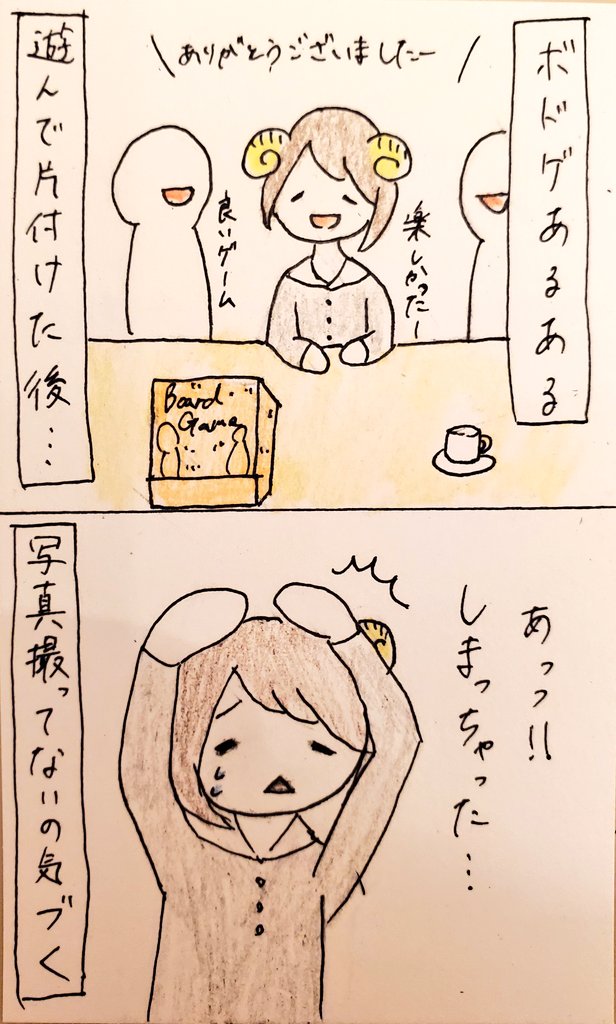 ボドゲあるある
ありがとうございましたー
楽しかったー
良いゲーム
遊んで片付けた後…
Board
Game
あっっ!!
しまっちゃった…
写真撮ってないの気づく